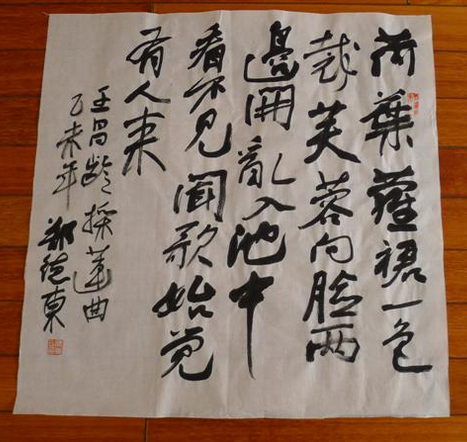 荷葉蘿裙一色
裁芙蓉向臉兩
邊開亂入池中
看不見聞歌始觉
有人来
王昌齡採蓮曲
乙未年